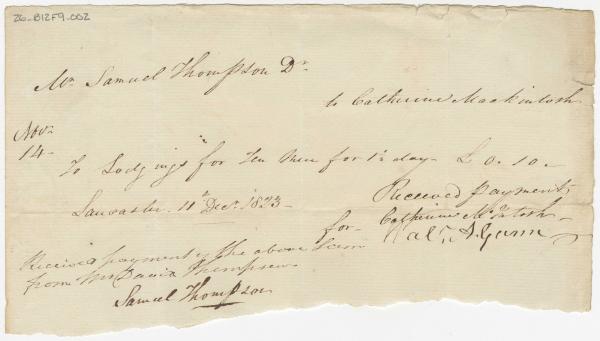 26-B12F9-002
Mr. Samuel Thompson Dr.
to Catherine Mackintosh
Nov.
14 - To Lodgings for Ten Men for 1½ day - £ 0. 10 -
Lancaster 11th Decr. 1823 -
Received payment,
Catherine McIntosh -
for
Received payment of the above Sum
from Mr David Thompson
Samuel Thompson